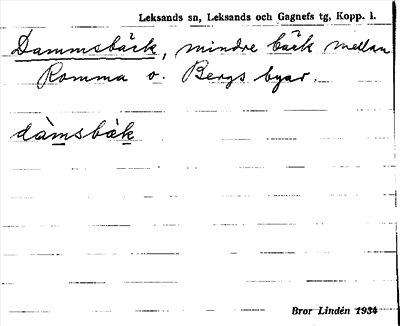 Leksands sn, Leksands och Gagnefs tg, Kopp. l.
Dammsbäck, mindre bäck mellan
Romma o. Bergs byar.
dàmsbäk
Bror Lindén 1934